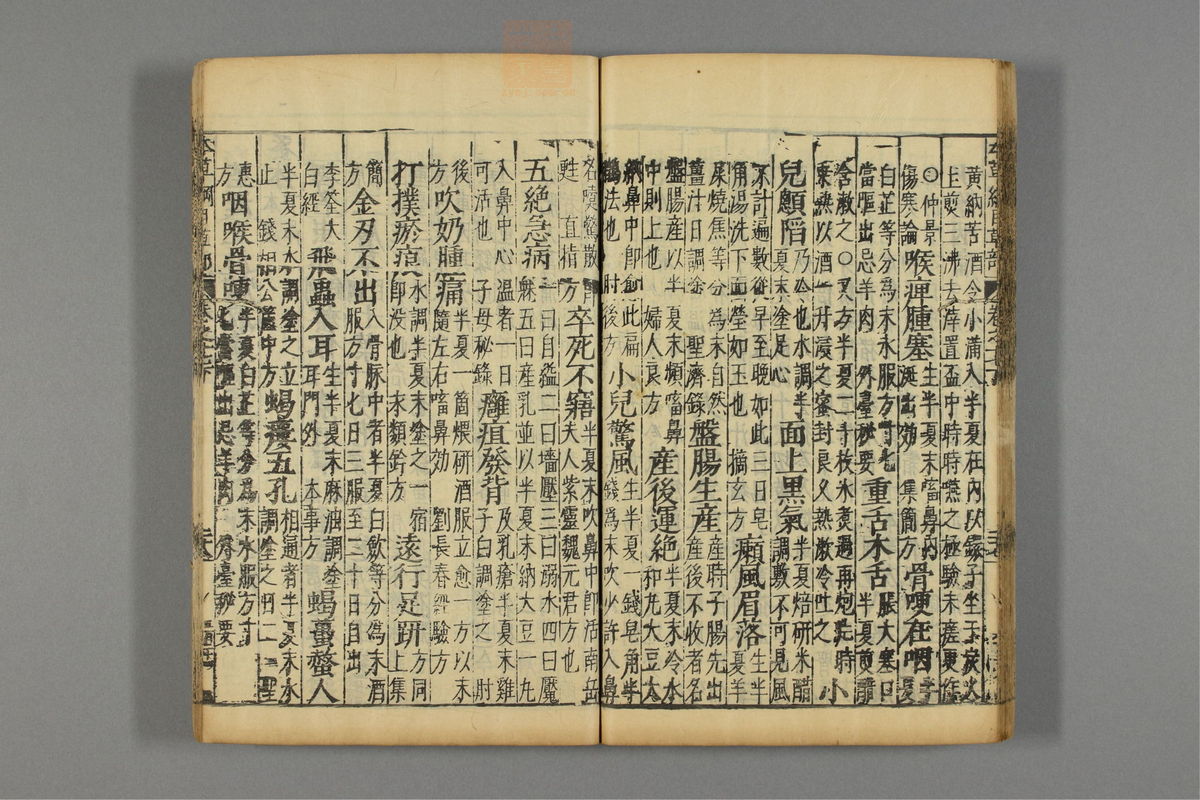 黃納苦酒令小滿入半夏在內以鐶子坐于炭火
上煎三沸去滓置盃中時時嚥之極驗未瘥更作
○仲景傷寒論 喉痺腫塞 生半夏末嗜鼻內涎出効 集簡方 骨哽在咽 半夏
白芷等分為末水服方寸匕當嘔出忌羊肉 外臺秘要 重舌木舌 脹大塞口半夏煎醋
含漱之○又方半夏二十枚水煮過再炮片時乘熱以酒一升浸之密封良久熱漱冷吐之 小
兒顖陷 乃冷也水調半夏末塗足心 面上黑氣 半夏焙研米醋調敷不可見風
不計遍數從早至晚如此三日皂角湯洗下面瑩如玉也 摘玄方 癩風眉落 生半夏羊
屎燒焦等分為末自然薑汁日調塗 聖濟錄 盤腸生產 產時子腸先出產後不收者名
盤腸產以半夏末頻嗜鼻中則上也 婦人良方 產後運絕 半夏末冷水和丸大豆大
納鼻中即愈此扁鵲法也 肘後方 小兒驚風 生半夏一錢皂角半錢為末吹少許入鼻
名嚏驚散即甦 直指方 卒死不寤 半夏末吹鼻中即活南岳夫人紫靈魏元君方也
五絕急病 一曰自縊二曰墻壓三曰溺水四曰魘魅五曰產乳並以半夏末納大豆一丸
入鼻中心溫者一日可活也 子母秘錄 癰疽發背 及乳瘡半夏末雞子白調塗之 肘
後方 吹奶腫痛 半夏一箇煨研酒服立愈一方以末隨左右嗜鼻効 劉長春經驗方
打撲瘀痕 水調半夏末塗之一宿即没也 永類鈐方 遠行足趼 方同上集
簡方 金刃不出 入骨脉中者半夏白斂等分為末酒服方寸匕日三服至二十日自出
李筌太白經 飛蟲入耳 生半夏末麻油調塗耳門外 本事方 蝎蠆螫人
半夏末水調塗之立止 錢相公篋中方 蝎瘻五孔 相通者半夏末水調塗之日二 聖
惠方 咽喉骨哽 半夏白芷等分為末水服方寸匕當嘔出忌羊肉 外臺秘要